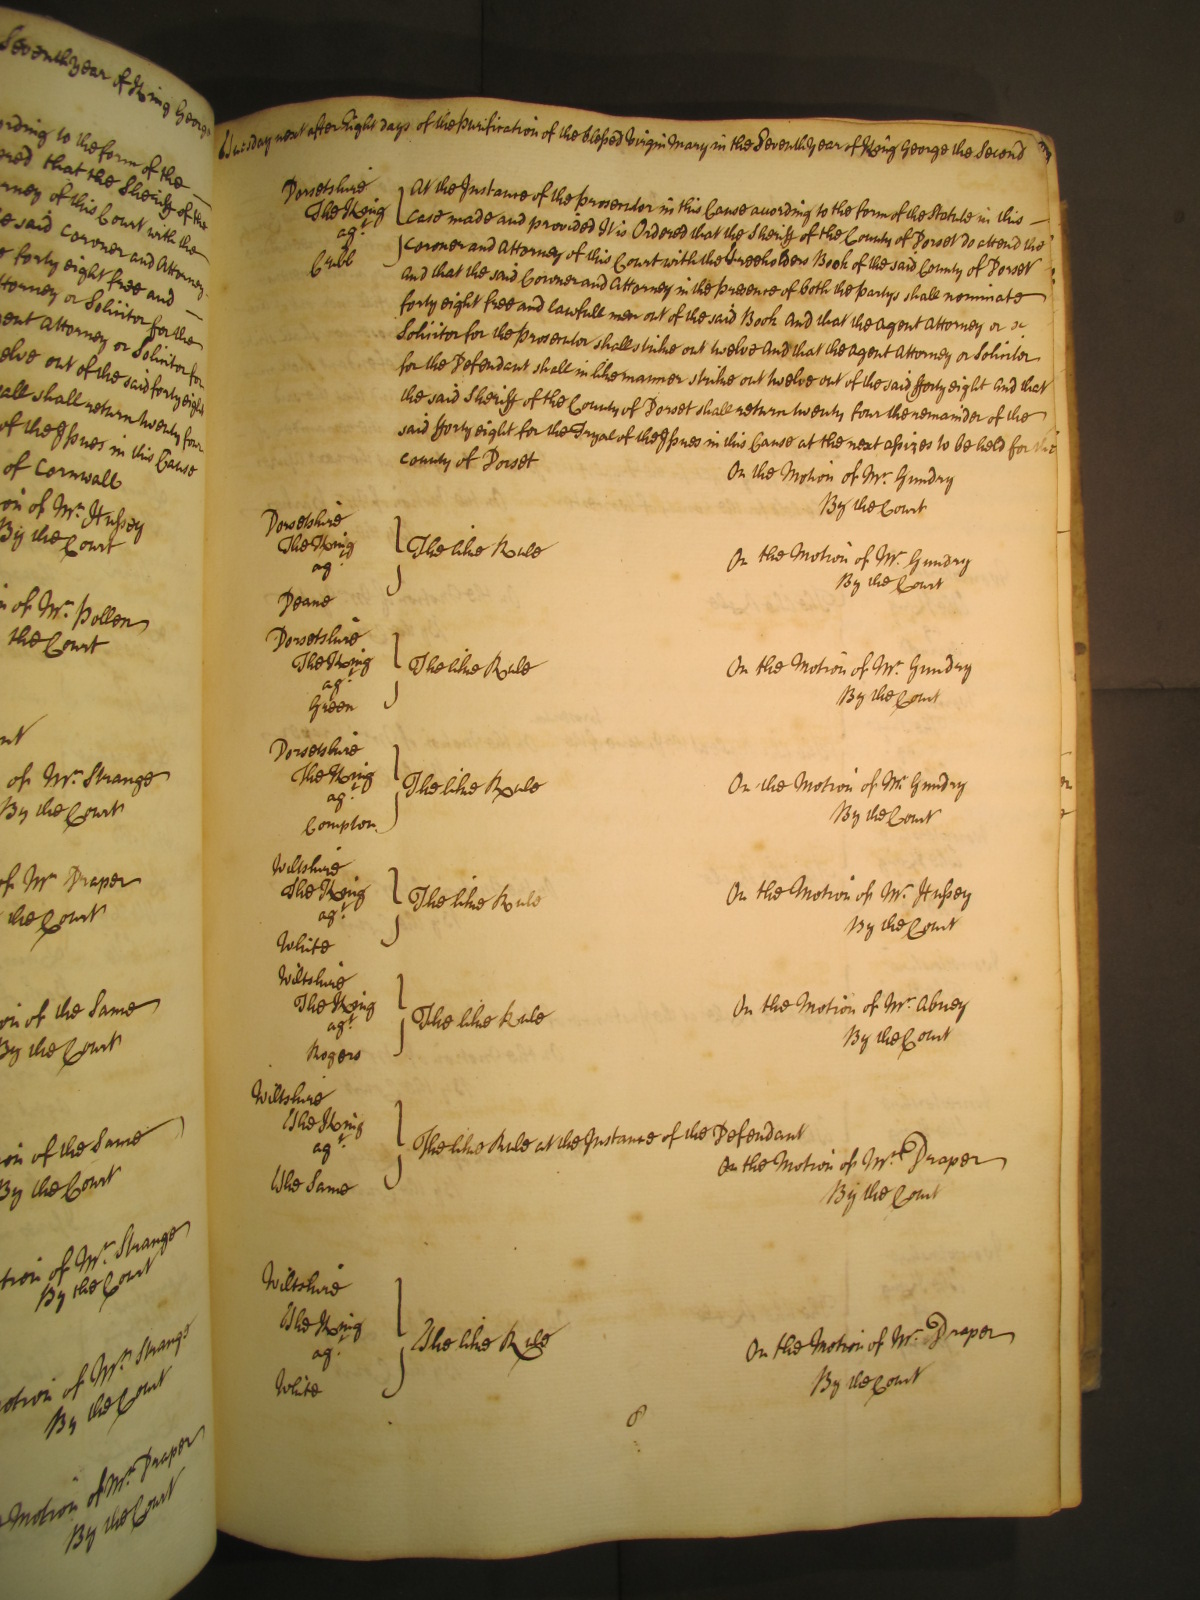 Seventh year of King George
ording to the form of the
ered that the Sheriff of the
torney of this Court with the
e said Coroner and Attorney
forty eight free and
ttorney or Solicitor for the
ent Attorney or Solicitor for
elve out of the said forty eight
all shall return twenty four
of the Issues in this Cause
of Cornwall
on of Mr. Hussey
By the Court
n of Mr. Pollen
the Court
of Mr. Strange
By the Court
of Mr Draper
the Court
on of the Same
By the Court
on of the Same
By the Court
tion of Mr. Strange
By the Court
otion of Mr. Strange
By the Court
Motion of Mr. Draper
By the Court
next after Eight days of the Purification of the blessed Virgin Mary in the Seventh Year of King George the Second
Dorsetshire
The King
agt.
Cubb
At the Instance of the prosecutor in this Cause according to the form of the Statute in this
Case made and provided It is Ordered that the Sheriff of the County of Dorset do attend the
Coroner and Attorney of this Court with the Freeholders Book of the said County of Dorset
And that the said Coroner and Attorney in the presence of both the partys shall nominate
forty eight free and lawfull men out of the said Book And that the Agent Attorney or
Solicitor for the prosecutor shall strike out twelve And that the Agent Attorney or Solicitor
for the Defendant shall in like manner strike out twelve out of the said fforty eight And that
the said Sheriff of the County of Dorset shall return twenty four the remainder of the
said fforty eight for the Tryal of the Issues in this Cause at the next assizes to be held for the
County of Dorset
On the Motion of Mr. Gundry
By the Court
Dorsetshire
The King
agt.
Deane
The like Rule
On the Motion of Mr. Gundry
By the Court
Dorsetshire
The King
agt.
Green
The like Rule
On the Motion of Mr. Gundry
By the Court
Dorsetshire
The King
agt.
Compton
The like Rule
On the Motion of Mr Gundry
By the Court
Wiltshire
The King
agt.
White
The like Rule
On the Motion of Mr. Hussey
By the Court
Wiltshire
The King
agt.
Rogers
The like Rule
On the Motion of Mr. Abney
By the Court
Wiltshire
The King
agt.
The Same
The like Rule at the Instance of the Defendant
On the Motion of Mr. Draper
By the Court
Wiltshire
The King
agt.
White
The like Rule
On the Motion of Mr. Draper
By the Court